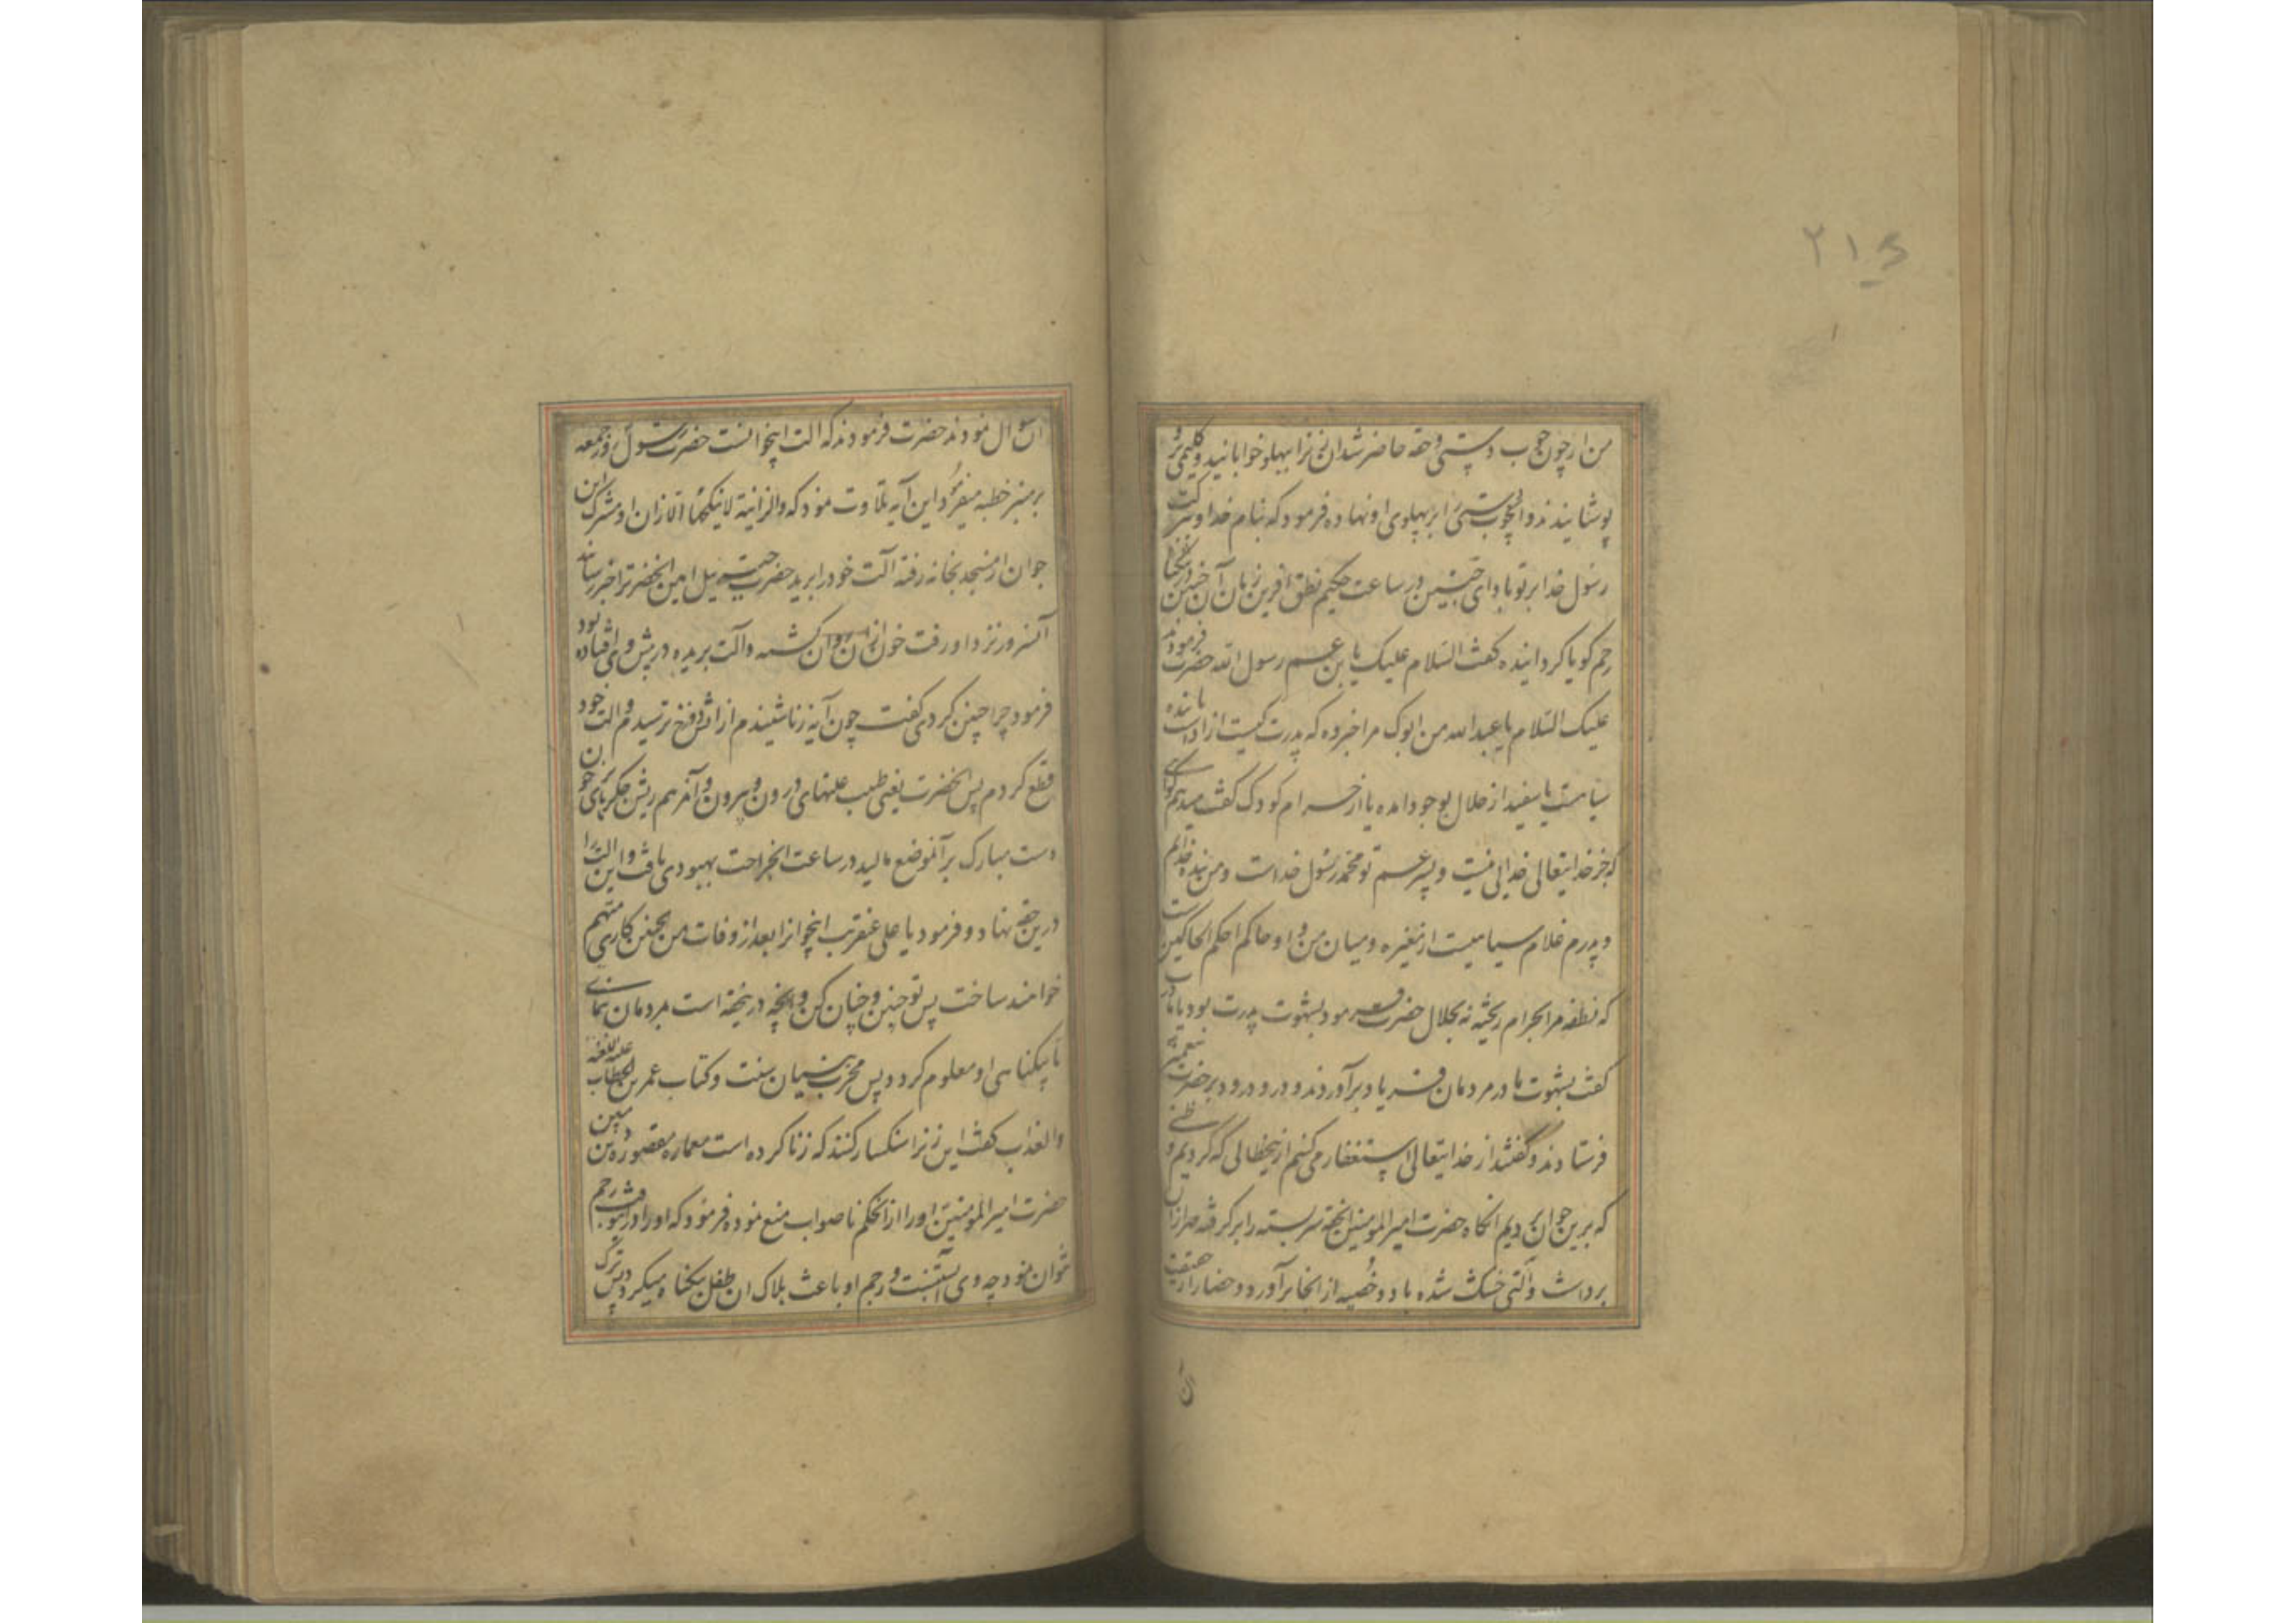 ۲۱۶
من ار چون چوب دستی و حقه حاضر شد آن زنرا بپهلو خوابانید و کلیمی برو
پوشانیدند و آنچوب دستی را بر پهلوی او نهاده فرمود که بنام خدا و برکت
رسول خدا بر تو باد ای جنین در ساعت حکیم نطق آفرین زبان آن جنین را در تنکنای
رحم کویا کردانیده کفت السّلام علیک یا بن عم رسول الله حضرت فرمودند
علیک السّلام یا عبدالله من ابوک مرا خبر ده که پدرت کیست آزاد است یا بنده
سیاهست یا سفید از حلال بوجود آمده یا از حرام کودک کفت میدهم کواهی
که بجز خدایتعالی خدائی نیست و پسر عم تو محمّد رسول خداست و من بنده خدایم
و پدرم غلام سیاهیست از مغیره و میان من و او حاکم احکم الحاکمین است
که نطفه مرا بحرام ریخته نه بحلال حضرت فرمود بشهوت پدرت بود یا مادرت
کفت بشهوت مادر مردمان فریاد برآوردند و درود بر حضرت پیغمبر
فرستادند و گفتند از خدایتعالی استغفار می کنیم ازین خطائی که کردیم و ظنی
که برین جوان بردیم آنکاه حضرت امیرالمومنین آنحقه سربسته را برکرفته مهر از آن
برداشت و آلتی خشک شده با دو خصیه از آنجا برآورد و حضار از حقیقت
آن
آن سوال نمودند حضرت فرمودند که آلت اینجوانست حضرت رسول روز جمعه
بر منبر خطبه میفرمود این آیه تلاوت نمود که والزانیة لاینکحها الا زان او مشرک این
جوان از مسجد بخانه رفته آلت خود را برید حضرت جبرئیل امین آنحضرترا خبر رسانید
آنسرور نزد او رفت خون از آن روان کشته و آلت بریده در پیش وی افتاده بود
فرمود چرا چنین کردی گفت چون آیه زنا شنیدم از آتش دوزخ ترسیدم و آلت خود
قطع کردم پس آنحضرت یعنی طبیب علتهای درون و بیرون و آن مرهم ریش جکرهای پر خون
دست مبارک بر آنموضع مالید در ساعت آنجراحت بهبودی یافت و این آلت را
درین حقه نهاد و فرمود یا علی عنقریب اینجوانرا بعد از وفات من بچنین کاری متهم
خواهند ساخت پس تو چنین و چنان کن و آنچه درین حقه است بمردمان نمای
تا بیکناهی او معلوم کردد پس مخرب بنیان سنت و کتاب عمر بن الخطاب علیه اللعنه
والعذاب کفت این زنرا سنکسار کنند که زنا کرده است معماره معموره دین مبین
حضرت امیرالمومنین او را از آنحکم ناصواب منع نموده فرمود که او را در اینوقت رجم
نتوان نمود چه وی آبستنست و رجم او باعث هلاک آن طفل بیکناه میکردد پس ترک